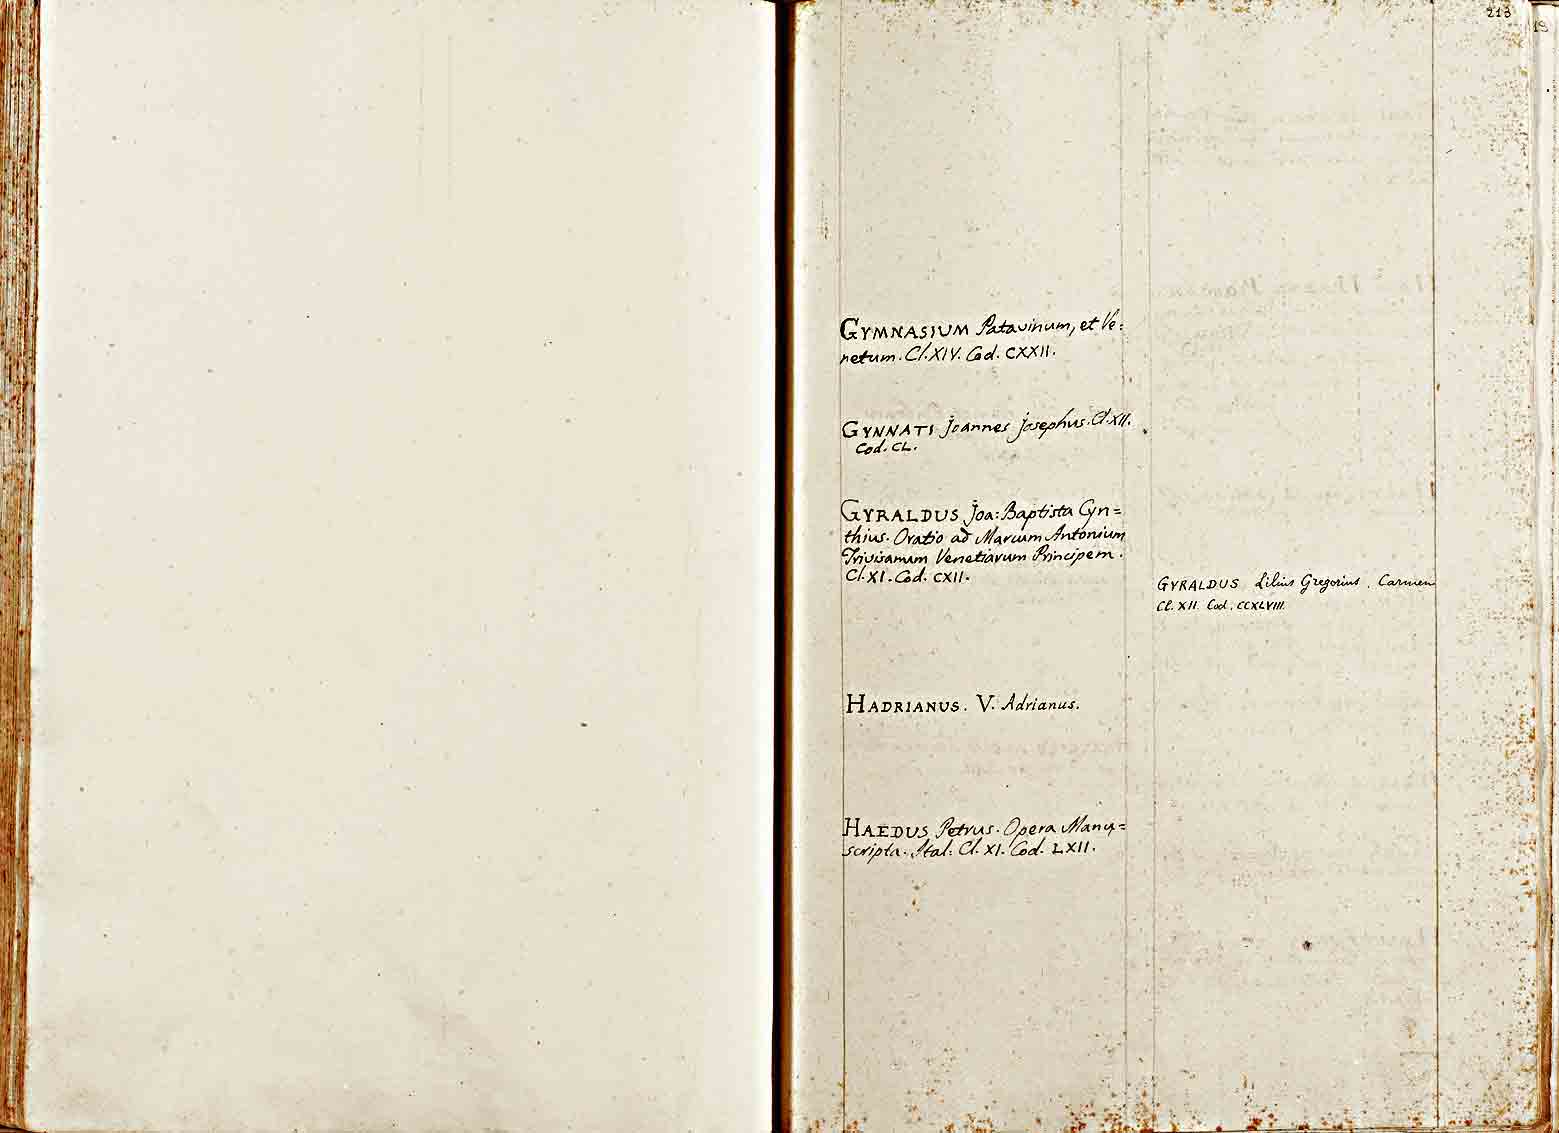 213
19
GYMNASIUM Patavinum, et Ve:
netum. Cl. XIV. Cod. CXXII.
GYNNATI Joannes Josephus. Cl. XII.
Cod. CL.
GYRALDUS Joa: Baptista Cyn=
thius. Oratio ad Marcum Antonium
Trivisanum Venetiarum Principem.
Cl. XI. Cod. CXII.
HADRIANUS. V. Adrianus.
HAEDUS Petrus. Opera Manu=
scripta. Ital: Cl. XI. Cod. LXII.
GYRALDUS Lilius Gregorius. Carmen
Cl. XII. Cod. CCXLVIII.